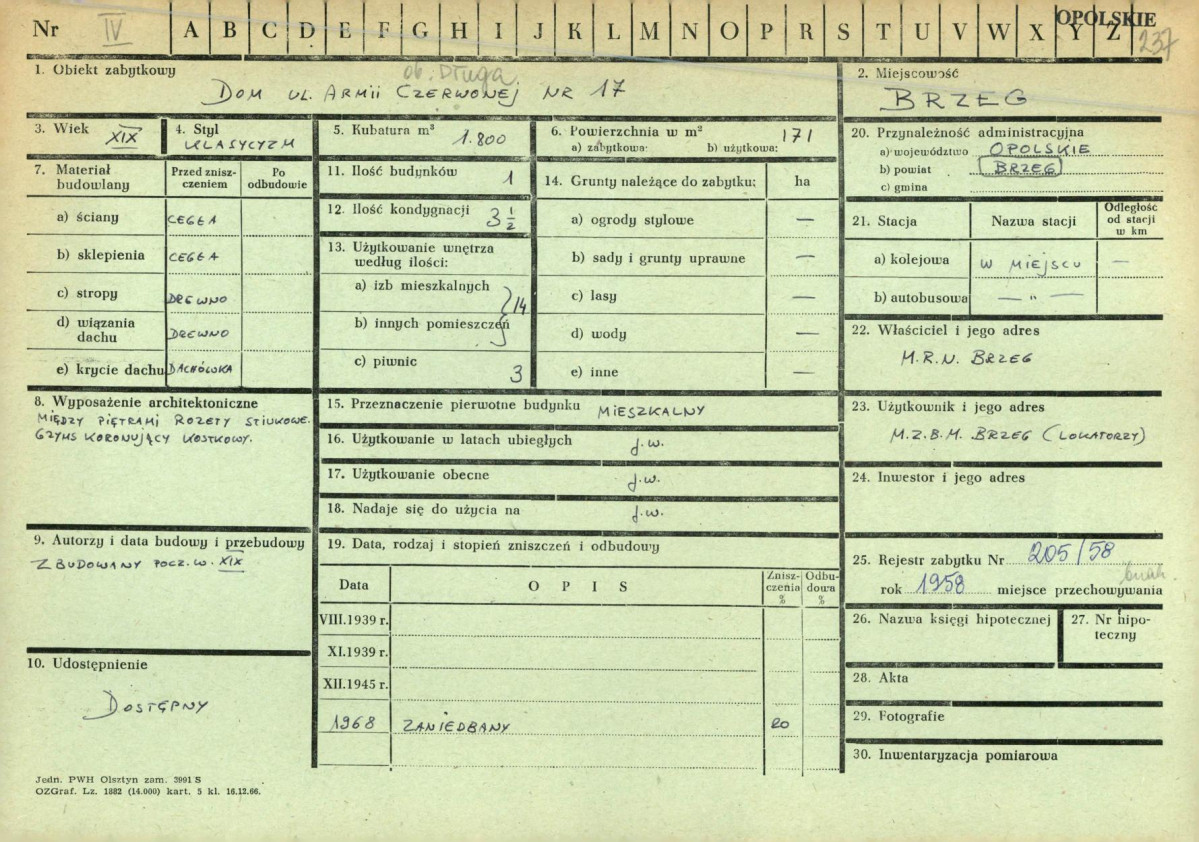 Nr IV A B C D E F G H I J K L M N O P R S T U V W X Y Z OPOLSKIE 237
1. Obiekt zabytkowy
ob. Długa
DOM UL. ARMII CZERWONEJ NR 17
2. Miejscowość
BRZEG
3. Wiek XIX
4. Styl KLASYCYZM
5. Kubatura m³ 1.800
6. Powierzchnia w m² 171
a) zabytkowa: b) użytkowa:
7. Materiał budowlany
Przed zniszczeniem
Po odbudowie
a) ściany CEGŁA
b) sklepienia CEGŁA
c) stropy DREWNO
d) wiązania dachu DREWNO
e) krycie dachu DACHÓWKA
8. Wyposażenie architektoniczne
MIĘDZY PIĘTRAMI ROZETY STIUKOWE.
GZYMS KORONUJĄCY KOSTKOWY.
9. Autorzy i data budowy i przebudowy
ZBUDOWANY POCZ. W. XIX
10. Udostępnienie
DOSTĘPNY
11. Ilość budynków 1
12. Ilość kondygnacji 3 1/2
13. Użytkowanie wnętrza
według ilości:
a) izb mieszkalnych
b) innych pomieszczeń 14
c) piwnic 3
14. Grunty należące do zabytku: ha
a) ogrody stylowe —
b) sady i grunty uprawne —
c) lasy —
d) wody —
e) inne —
15. Przeznaczenie pierwotne budynku MIESZKALNY
16. Użytkowanie w latach ubiegłych j.w.
17. Użytkowanie obecne j.w.
18. Nadaje się do użycia na j.w.
19. Data, rodzaj i stopień zniszczeń i odbudowy
Data OPIS Zniszczenia % Odbudowa %
VIII.1939 r.
XI.1939 r.
XII.1945 r.
1968 ZANIEDBANY 20
20. Przynależność administracyjna
a) województwo OPOLSKIE
b) powiat BRZEG
c) gmina
21. Stacja Nazwa stacji Odległość od stacji w km
a) kolejowa W MIEJSCU —
b) autobusowa — " —
22. Właściciel i jego adres
M.R.N. BRZEG
23. Użytkownik i jego adres
M.Z.B.M. BRZEG (LOKATORZY)
24. Inwestor i jego adres
25. Rejestr zabytku Nr 205/58
rok 1958 miejsce przechowywania
26. Nazwa księgi hipotecznej
27. Nr hipoteczny
28. Akta
29. Fotografie
30. Inwentaryzacja pomiarowa
Jedn. PWH Olsztyn zam. 3991 S
OZGraf. Lz. 1882 (14.000) kart. 5 kl. 16.12.66.